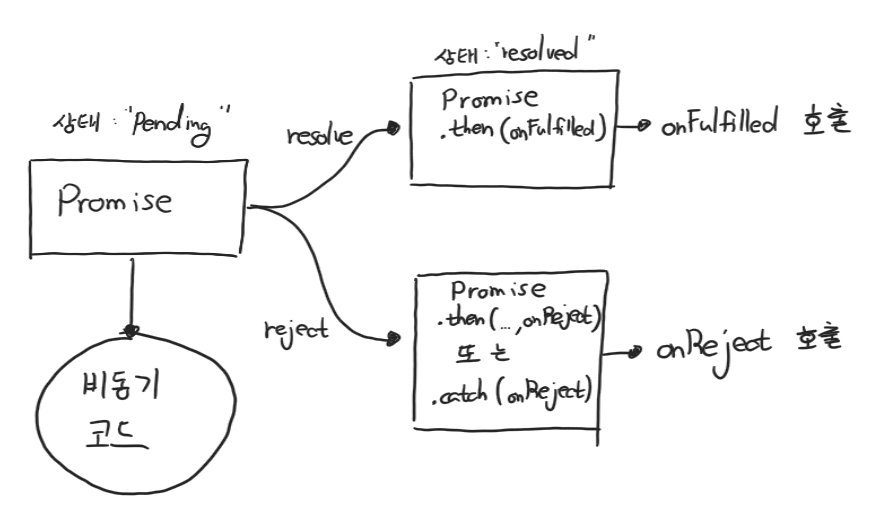 상태 : "Pending"
Promise
비동기
코드
resolve
reject
상태 : "resolved"
Promise
.then(onFulfilled)
onFulfilled 호출
Promise
.then(...,onReject)
또는
.catch(onReject)
onReject 호출